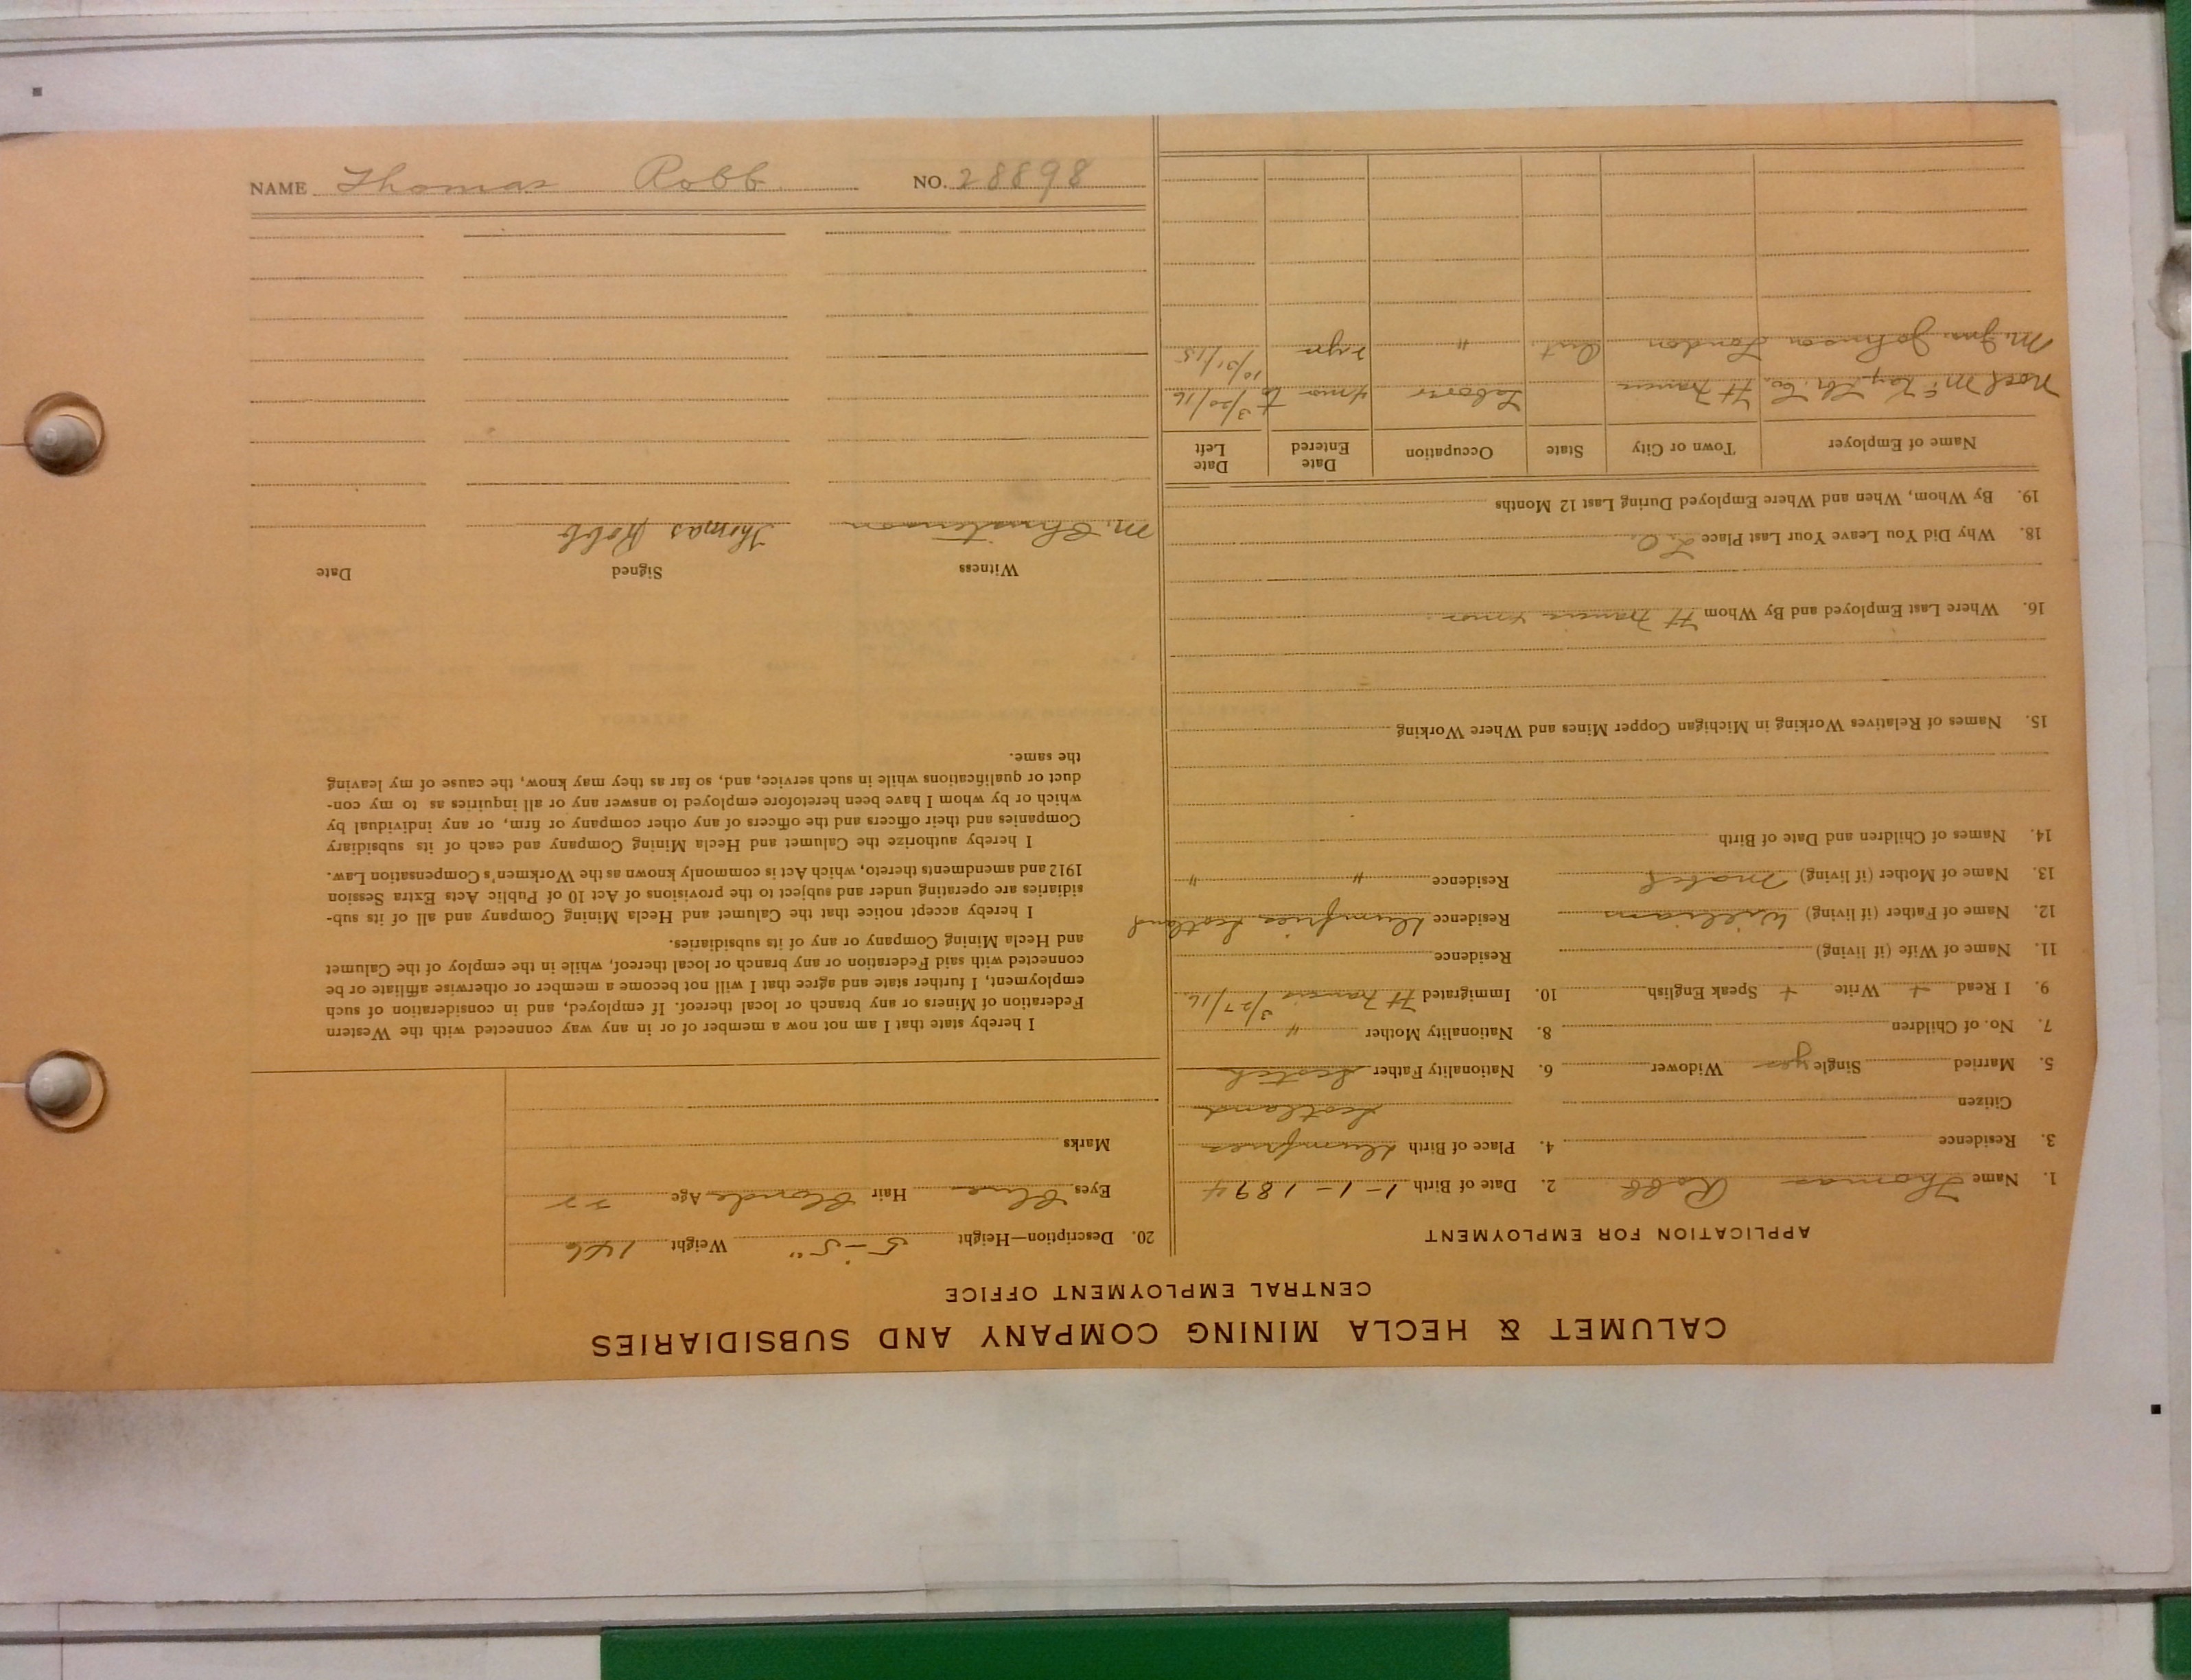 CALUMET & HECLA MINING COMPANY AND SUBSIDIARIES
CENTRAL EMPLOYMENT OFFICE
APPLICATION FOR EMPLOYMENT
1. Name Thomas Robb 2. Date of Birth 1-1-1894
3. Residence 4. Place of Birth Dumfries
Citizen Scotland
5. Married Single yes Widower 6. Nationality Father Scotch
7. No. of Children 8. Nationality Mother "
9. I Read + Write + Speak English 10. Immigrated Ft Francis 3/27/16
11. Name of Wife (if living) Residence
12. Name of Father (if living) Williams Residence Dumfries Scotland
13. Name of Mother (if living) Mabel Residence " "
14. Names of Children and Date of Birth
15. Names of Relatives Working in Michigan Copper Mines and Where Working
16. Where Last Employed and By Whom Ft Francis 4 mos.
18. Why Did You Leave Your Last Place L.O.
19. By Whom, When and Where Employed During Last 12 Months
Name of Employer Town or City State Occupation Date Entered Date Left
Noel McKay Co. Ft Francis Laborer 4 mo to 3/20/16
M. Jno. Johnson London Ont. " 2 yr 10/31/15
20. Description—Height 5-5" Weight 146
Eyes Blue Hair Blonde Age 22
Marks
I hereby state that I am not now a member of or in any way connected with the Western
Federation of Miners or any branch or local thereof. If employed, and in consideration of such
employment, I further state and agree that I will not become a member or otherwise affiliate or be
connected with said Federation or any branch or local thereof, while in the employ of the Calumet
and Hecla Mining Company or any of its subsidiaries.
I hereby accept notice that the Calumet and Hecla Mining Company and all of its sub-
sidiaries are operating under and subject to the provisions of Act 10 of Public Acts Extra Session
1912 and amendments thereto, which Act is commonly known as the Workmen's Compensation Law.
I hereby authorize the Calumet and Hecla Mining Company and each of its subsidiary
Companies and their officers and the officers of any other company or firm, or any individual by
which or by whom I have been heretofore employed to answer any or all inquiries as to my con-
duct or qualifications while in such service, and, so far as they may know, the cause of my leaving
the same.
Witness Signed Date
M. Christenson Thomas Robb
NAME Thomas Robb NO. 28898